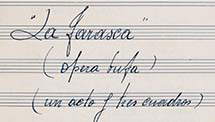 "La farasca"
(opera bufa)
(un acto y tres cuadros)